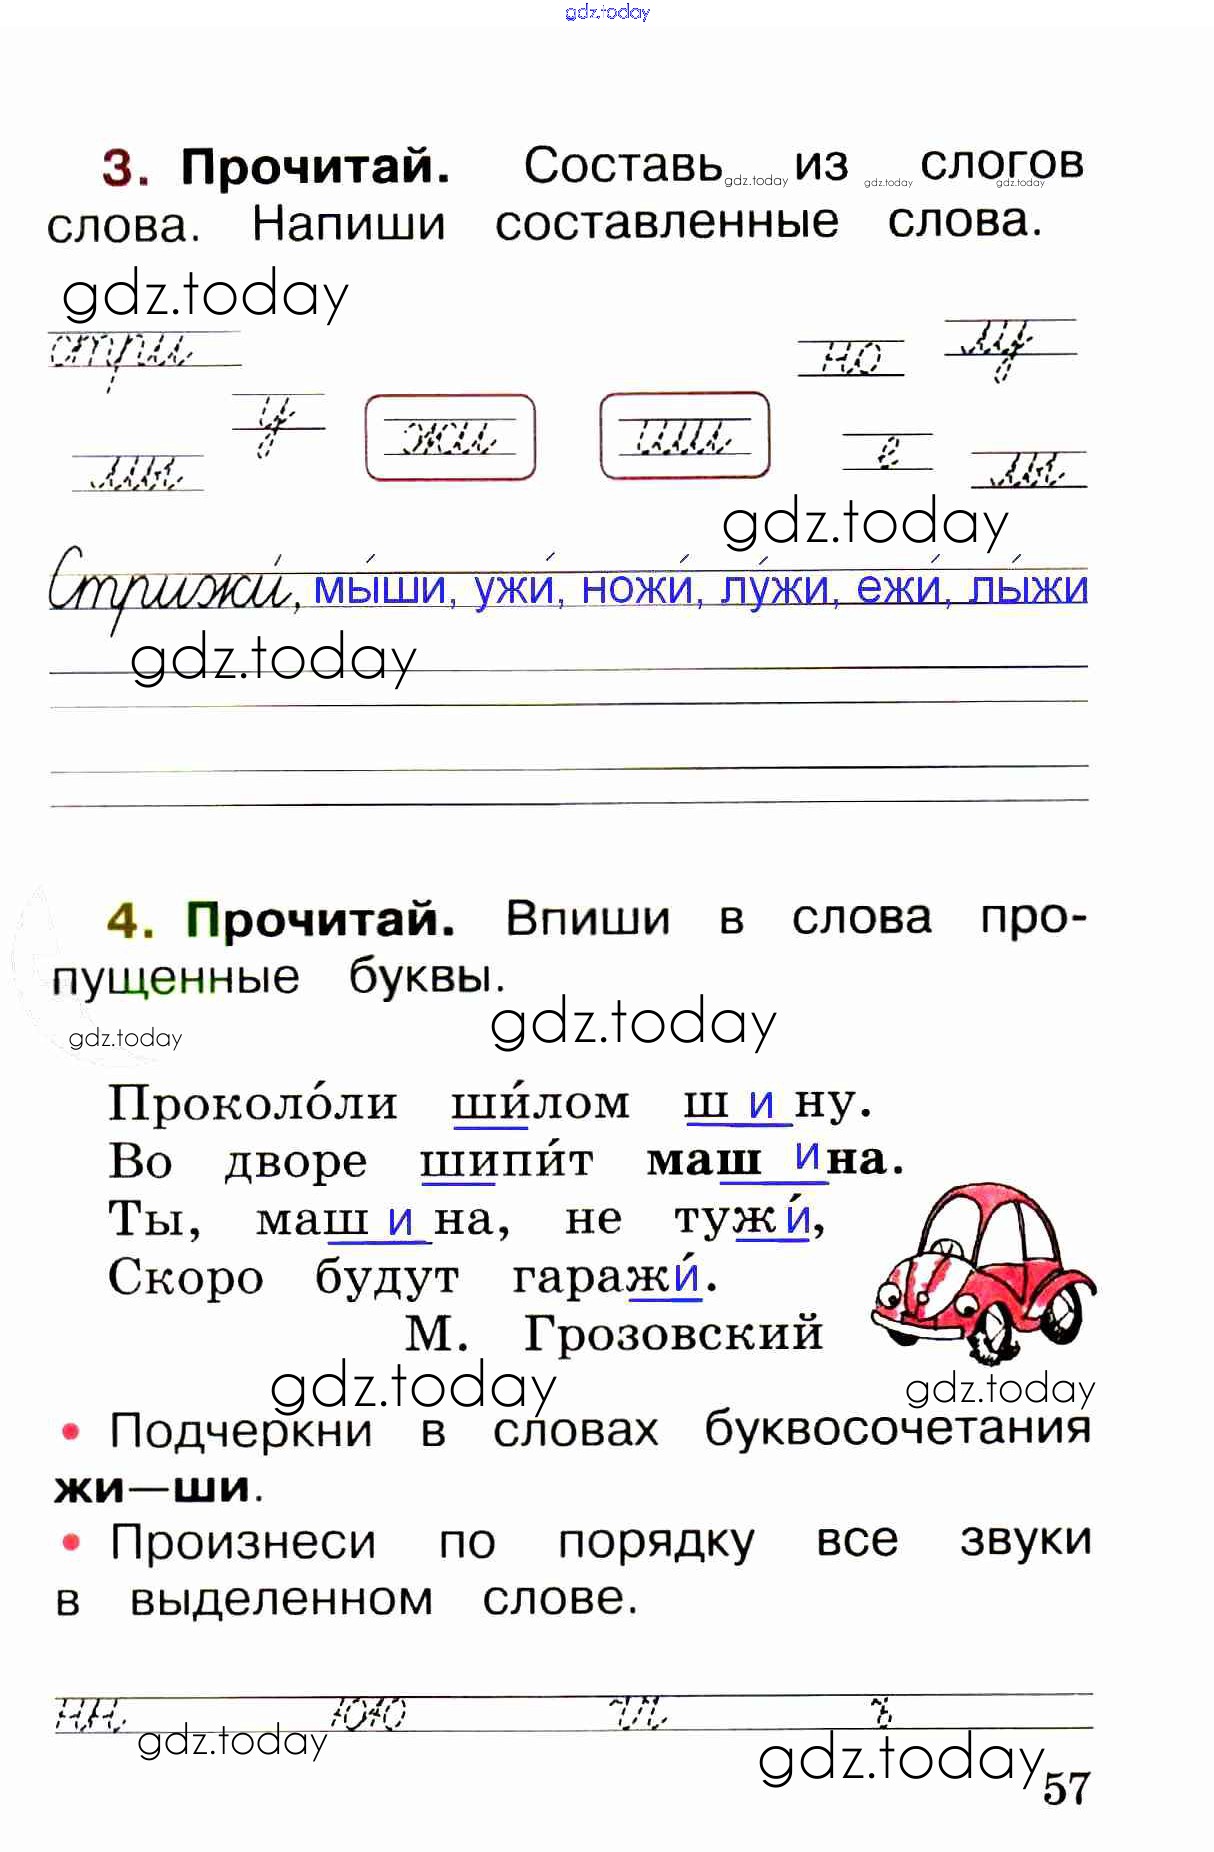 gdz.today
3. Прочитай. Составь gdz.today из gdz.today слогов gdz.today
слова. Напиши составленные слова.
gdz.today
стри но лу
у жи ши е
мы лы
gdz.today
Стрижи́, мы́ши, ужи́, ножи́, лу́жи, ежи́, лы́жи
gdz.today
4. Прочитай. Впиши в слова про-
пущенные буквы.
gdz.today gdz.today
Проколо́ли ши́лом ш и ну.
Во дворе шипи́т маш ина.
Ты, маш и на, не тужи́,
Скоро будут гаражи́.
М. Грозовский
gdz.today gdz.today
• Подчеркни в словах буквосочетания
жи—ши.
• Произнеси по порядку все звуки
в выделенном слове.
gdz.today gdz.today
57